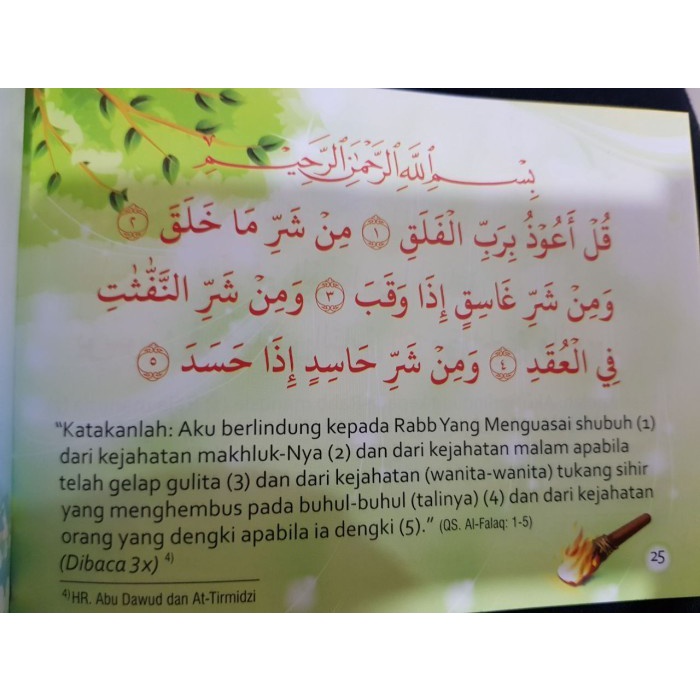 بِسْمِ اللَّهِ الرَّحْمَٰنِ الرَّحِيمِ
قُلْ أَعُوْذُ بِرَبِّ الْفَلَقِ ١ مِنْ شَرِّ مَا خَلَقَ ٢
وَمِنْ شَرِّ غَاسِقٍ إِذَا وَقَبَ ٣ وَمِنْ شَرِّ النَّفّٰثٰتِ
فِي الْعُقَدِ ٤ وَمِنْ شَرِّ حَاسِدٍ إِذَا حَسَدَ ٥
"Katakanlah: Aku berlindung kepada Rabb Yang Menguasai shubuh (1)
dari kejahatan makhluk-Nya (2) dan dari kejahatan malam apabila
telah gelap gulita (3) dan dari kejahatan (wanita-wanita) tukang sihir
yang menghembus pada buhul-buhul (talinya) (4) dan dari kejahatan
orang yang dengki apabila ia dengki (5)." (QS. Al-Falaq: 1-5)
(Dibaca 3x) 4)
4) HR. Abu Dawud dan At-Tirmidzi
25